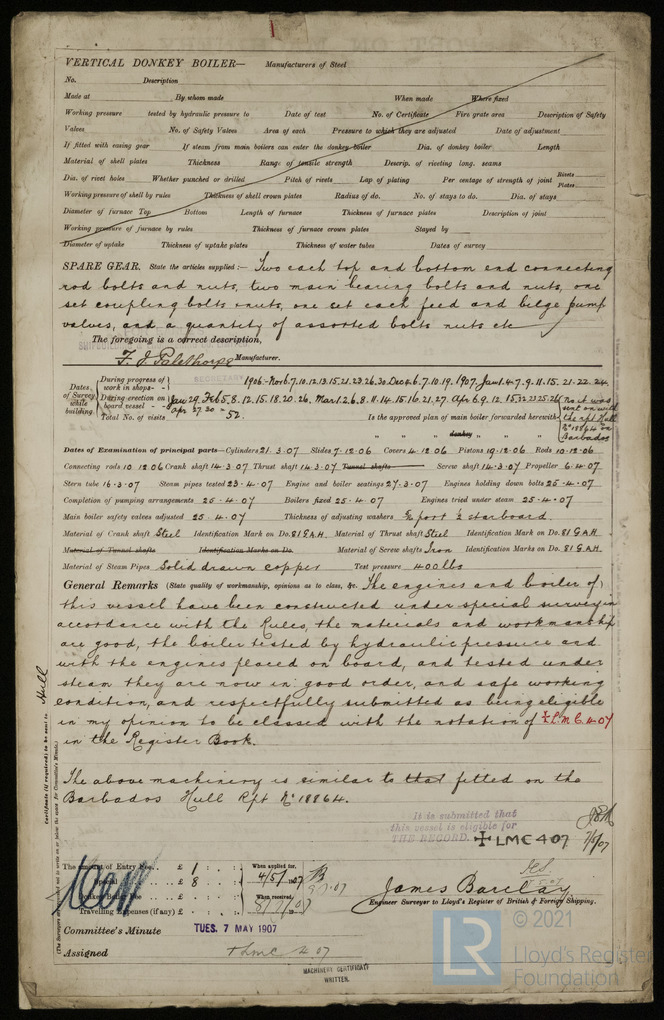 VERTICAL DONKEY BOILER— Manufacturers of Steel
No. Description
Made at By whom made When made Where fixed
Working pressure tested by hydraulic pressure to Date of test No. of Certificate Fire grate area Description of Safety
Valves No. of Safety Valves Area of each Pressure to which they are adjusted Date of adjustment
If fitted with easing gear If steam from main boilers can enter the donkey boiler Dia. of donkey boiler Length
Material of shell plates Thickness Range of tensile strength Descrip. of riveting long. seams
Dia. of rivet holes Whether punched or drilled Pitch of rivets Lap of plating Per centage of strength of joint Rivets Plates
Working pressure of shell by rules Thickness of shell crown plates Radius of do. No. of stays to do. Dia. of stays
Diameter of furnace Top Bottom Length of furnace Thickness of furnace plates Description of joint
Working pressure of furnace by rules Thickness of furnace crown plates Stayed by
Diameter of uptake Thickness of uptake plates Thickness of water tubes Dates of survey
SPARE GEAR. State the articles supplied:— Two each top and bottom end connecting
rod bolts and nuts, two main bearing bolts and nuts, one
set coupling bolts & nuts, one set each feed and belge pump
valves, and a quantity of assorted bolts nuts etc
The foregoing is a correct description,
F. J. Palethorpe Manufacturer.
Dates of Survey while building
During progress of work in shops - - 1906.-Nov 6.7.10.12.13.15.21.23.26.30 Dec 4.6.7.10.19. 1907. Jan 1.4.7.9.11.15. 21.22.24.
During erection on board vessel - - Jan 29. Feb 5.8.12.15.18.20.26. Mar 1.2.6.8.11.14.15.16.21.27. Apr 6.9.12.15.22.23.25.26
Apr 27.30
Total No. of visits 52. Is the approved plan of main boiler forwarded herewith
No it was sent on with the rpt Hull No 18864 on Barbados
" " " donkey " " "
Dates of Examination of principal parts—Cylinders 21.3.07 Slides 7.12.06 Covers 4.12.06 Pistons 19.12.06 Rods 10.12.06
Connecting rods 10 12 06 Crank shaft 14.3.07 Thrust shaft 14.3.07 Tunnel shafts Screw shaft 14.3.07 Propeller 6.4.07
Stern tube 16.3.07 Steam pipes tested 23.4.07 Engine and boiler seatings 27.3.07 Engines holding down bolts 25.4.07
Completion of pumping arrangements 25.4.07 Boilers fixed 25.4.07 Engines tried under steam 25.4.07
Main boiler safety valves adjusted 25.4.07 Thickness of adjusting washers port ½ starboard.
Material of Crank shaft Steel Identification Mark on Do. 81 G.A.H. Material of Thrust shaft Steel Identification Mark on Do. 81 G.A.H
Material of Tunnel shafts Identification Marks on Do. Material of Screw shafts Iron Identification Marks on Do. 81 G.A.H.
Material of Steam Pipes Solid drawn copper Test pressure 400 lbs
General Remarks (State quality of workmanship, opinions as to class, &c. The engines and boiler of
this vessel have been constructed under special survey in
accordance with the Rules, the materials and workmanship
are good, the boiler tested by hydraulic pressure and
with the engines placed on board, and tested under
steam they are now in good order, and safe working
condition, and respectfully submitted as being eligible
in my opinion to be classed with the notation of ✠ L.M.C. 4.07
in the Register Book.
The above machinery is similar to that fitted on the
Barbados Hull Rpt No 18864.
It is submitted that
this vessel is eligible for
THE RECORD. ✠ LMC 4 07
7/5/07
Certificate (if required) to be sent to Hull
(The Surveyors are requested not to write on or below the space for Committee's Minute.)
The amount of Entry Fee . . £ 1 : : When applied for,
Special £ 8 : : 4/5/1907
Donkey Boiler Fee £ : : When received,
Travelling Expenses (if any) £ : :
James Barclay
Engineer Surveyor to Lloyd's Register of British & Foreign Shipping.
Committee's Minute TUES. 7 MAY 1907
Assigned + LMC 4 07
MACHINERY CERTIFICATE
WRITTEN.
LR
© 2021
Lloyd's Register
Foundation